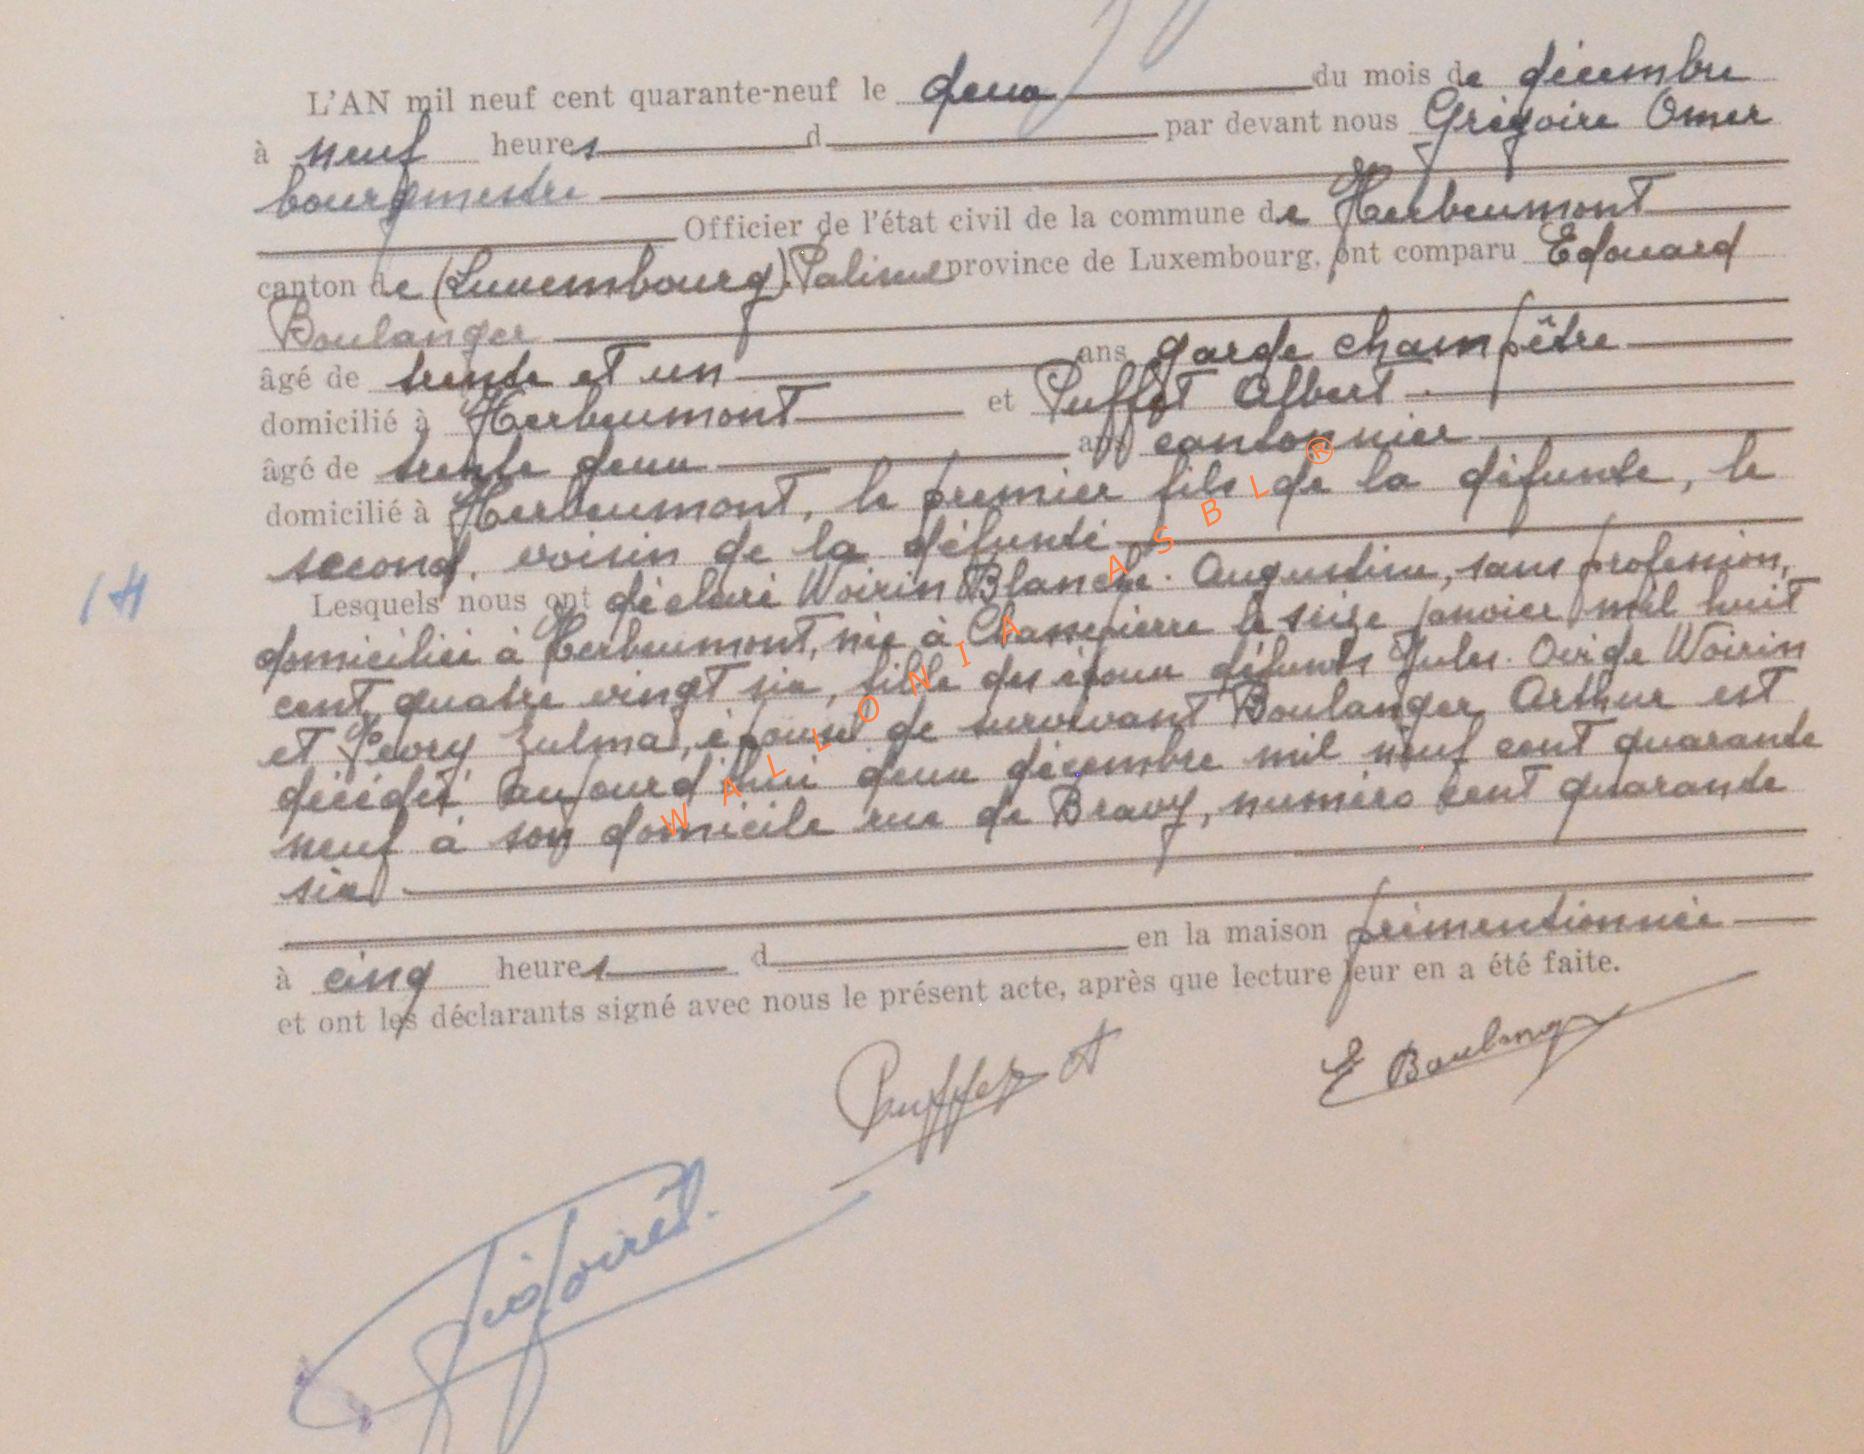 L'AN mil neuf cent quarante-neuf le deux du mois de décembre
à neuf heures d par devant nous Grégoire Omer
bourgmestre
Officier de l'état civil de la commune de Herbeumont
canton de (Luxembourg) Paliseul province de Luxembourg, ont comparu Edouard
Boulanger
âgé de trente et un ans garde champêtre
domicilié à Herbeumont et Puffet Albert
âgé de trente deux ans cantonnier
domicilié à Herbeumont, le premier fils de la défunte, le
second, voisin de la défunte
14
Lesquels nous ont déclaré Woirin Blanche. Augustine, sans profession,
domiciliée à Herbeumont, née à Chassepierre le seize janvier mil huit
cent quatre vingt six, fille des époux défunts Jules. Ovide Woirin
et Zulma, épouse de survivant Boulanger Arthur est
décédée aujourd'hui deux décembre mil neuf cent quarante
neuf à son domicile rue de Bravy, numéro cent quarante
six
à cinq heures d en la maison prémentionnée
et ont les déclarants signé avec nous le présent acte, après que lecture leur en a été faite.
Puffet A
E Boulanger
GrégoireO.
WALLONIA ASBL ®